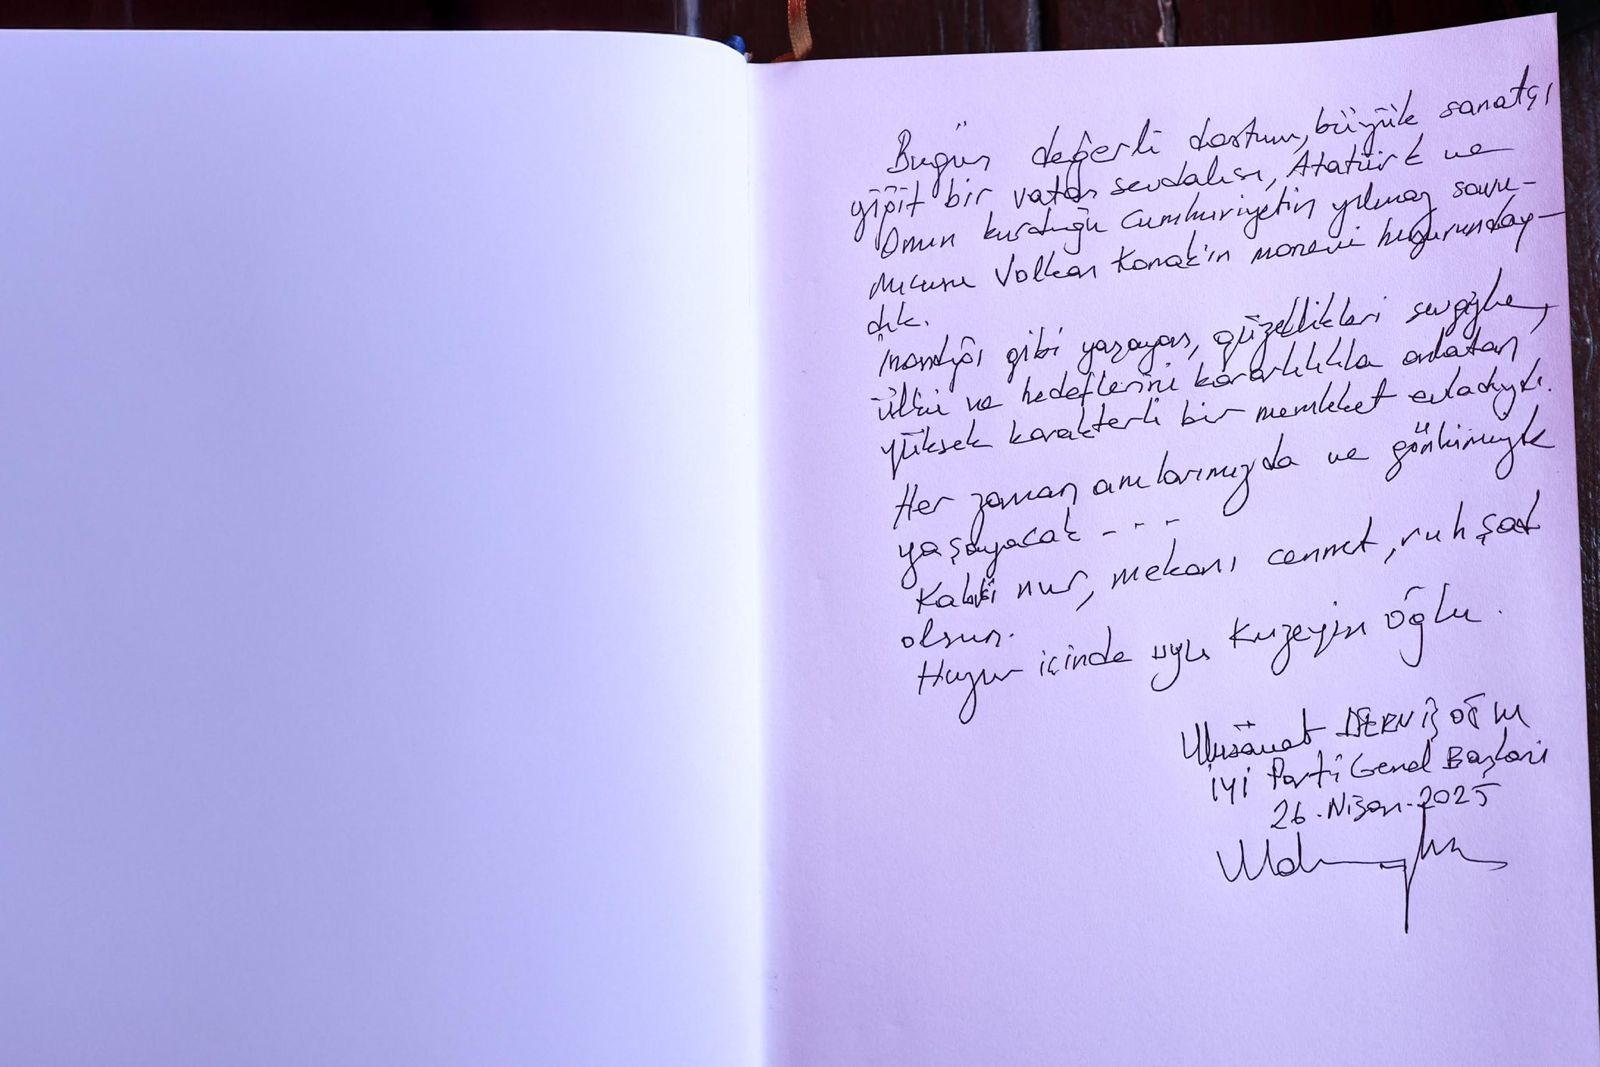 Bugün değerli dostum, büyük sanatçı
yiğit bir vatan sevdalısı, Atatürk ve
Onun kurduğu Cumhuriyetin yılmaz savu-
nucusu Volkan Konak'ın manevi huzurunday-
dık.
İnandığı gibi yaşayan, güzellikleri sevgiyle,
ülkü ve hedeflerini kararlılıkla anlatan,
yüksek karakterli bir memleket evladıydı.
Her zaman anılarımızda ve gönlümüzde
yaşayacak - - -
Kabri nur, mekanı cennet, ruh şad
olsun.
Huzur içinde uyu Kuzeyin Oğlu.
Müsavat DERVİŞOĞLU
İYİ Parti Genel Başkanı
26.Nisan.2025